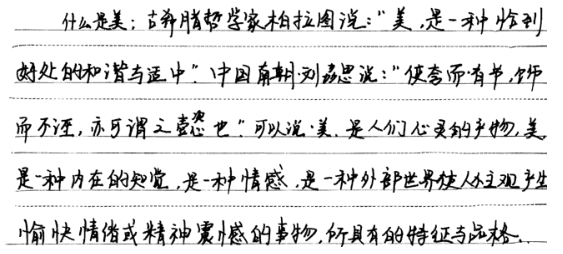 什么是美:古希腊哲学家柏拉图说:"美,是一种恰到
好处的和谐与适中"。中国南朝刘勰说:"使夸而有节,饰
而不诬,亦可谓之懿也"可以说,美,是人们心灵的产物,美
是一种内在的知觉,是一种情感,是一种外部世界使人主观产生
愉快情绪或精神震憾的事物,所具有的特征与品格.